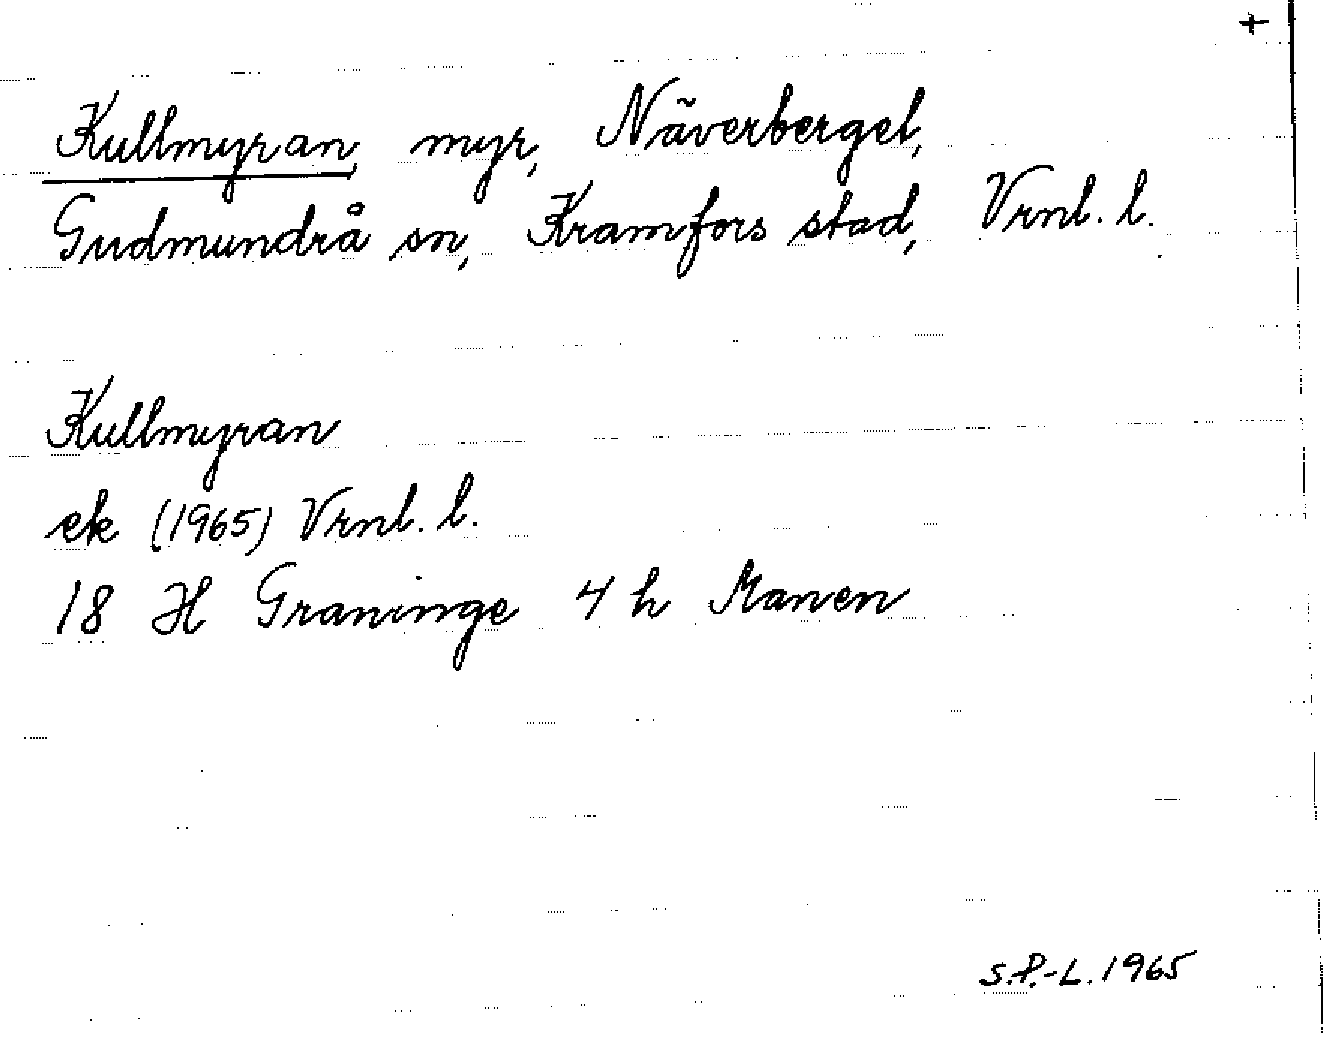 +
Kullmyran, myr, Näverberget,
Gudmundrå sn, Kramfors stad, Vrnl. l.
Kullmyran
ek (1965) Vrnl. l.
18 H Graninge 4 h Manen
S.P.-L. 1965